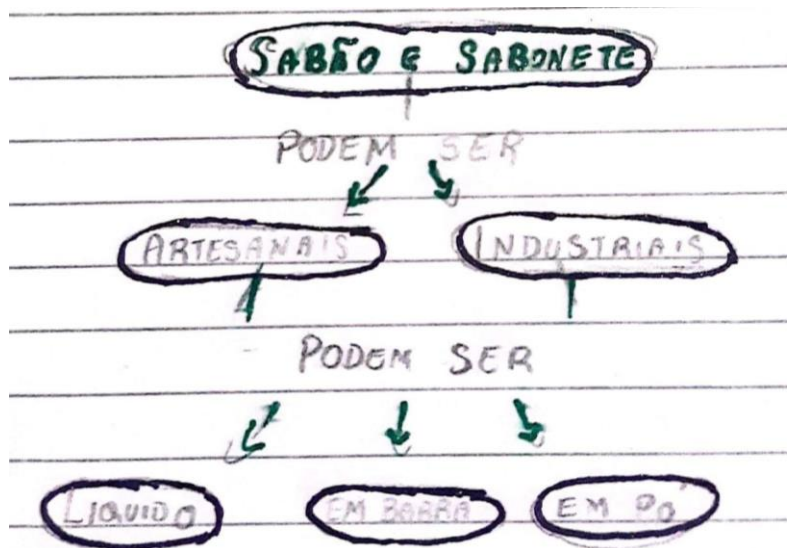 SABÃO E SABONETE
PODEM SER
ARTESANAIS INDUSTRIAIS
PODEM SER
LIQUIDO EM BARRA EM PÓ